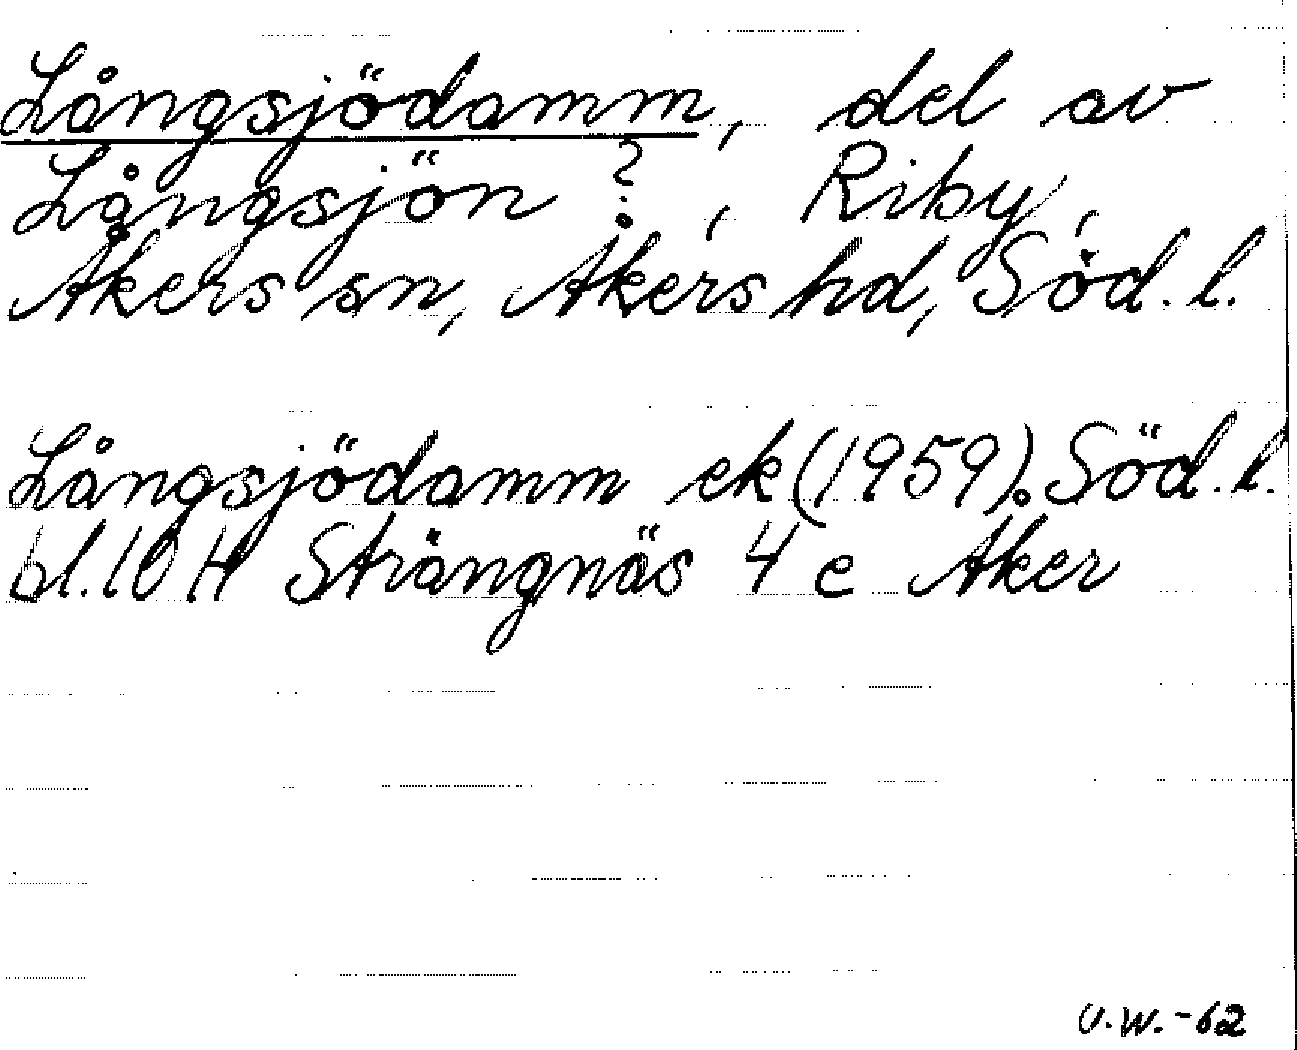 Långsjödamm, del av
Långsjön ?, Riby,
Åkers sn, Åkers hd, Söd. l.
Långsjödamm ek (1959). Söd. l.
bl. 10 H Strängnäs 4 e Åker
U.W. -62